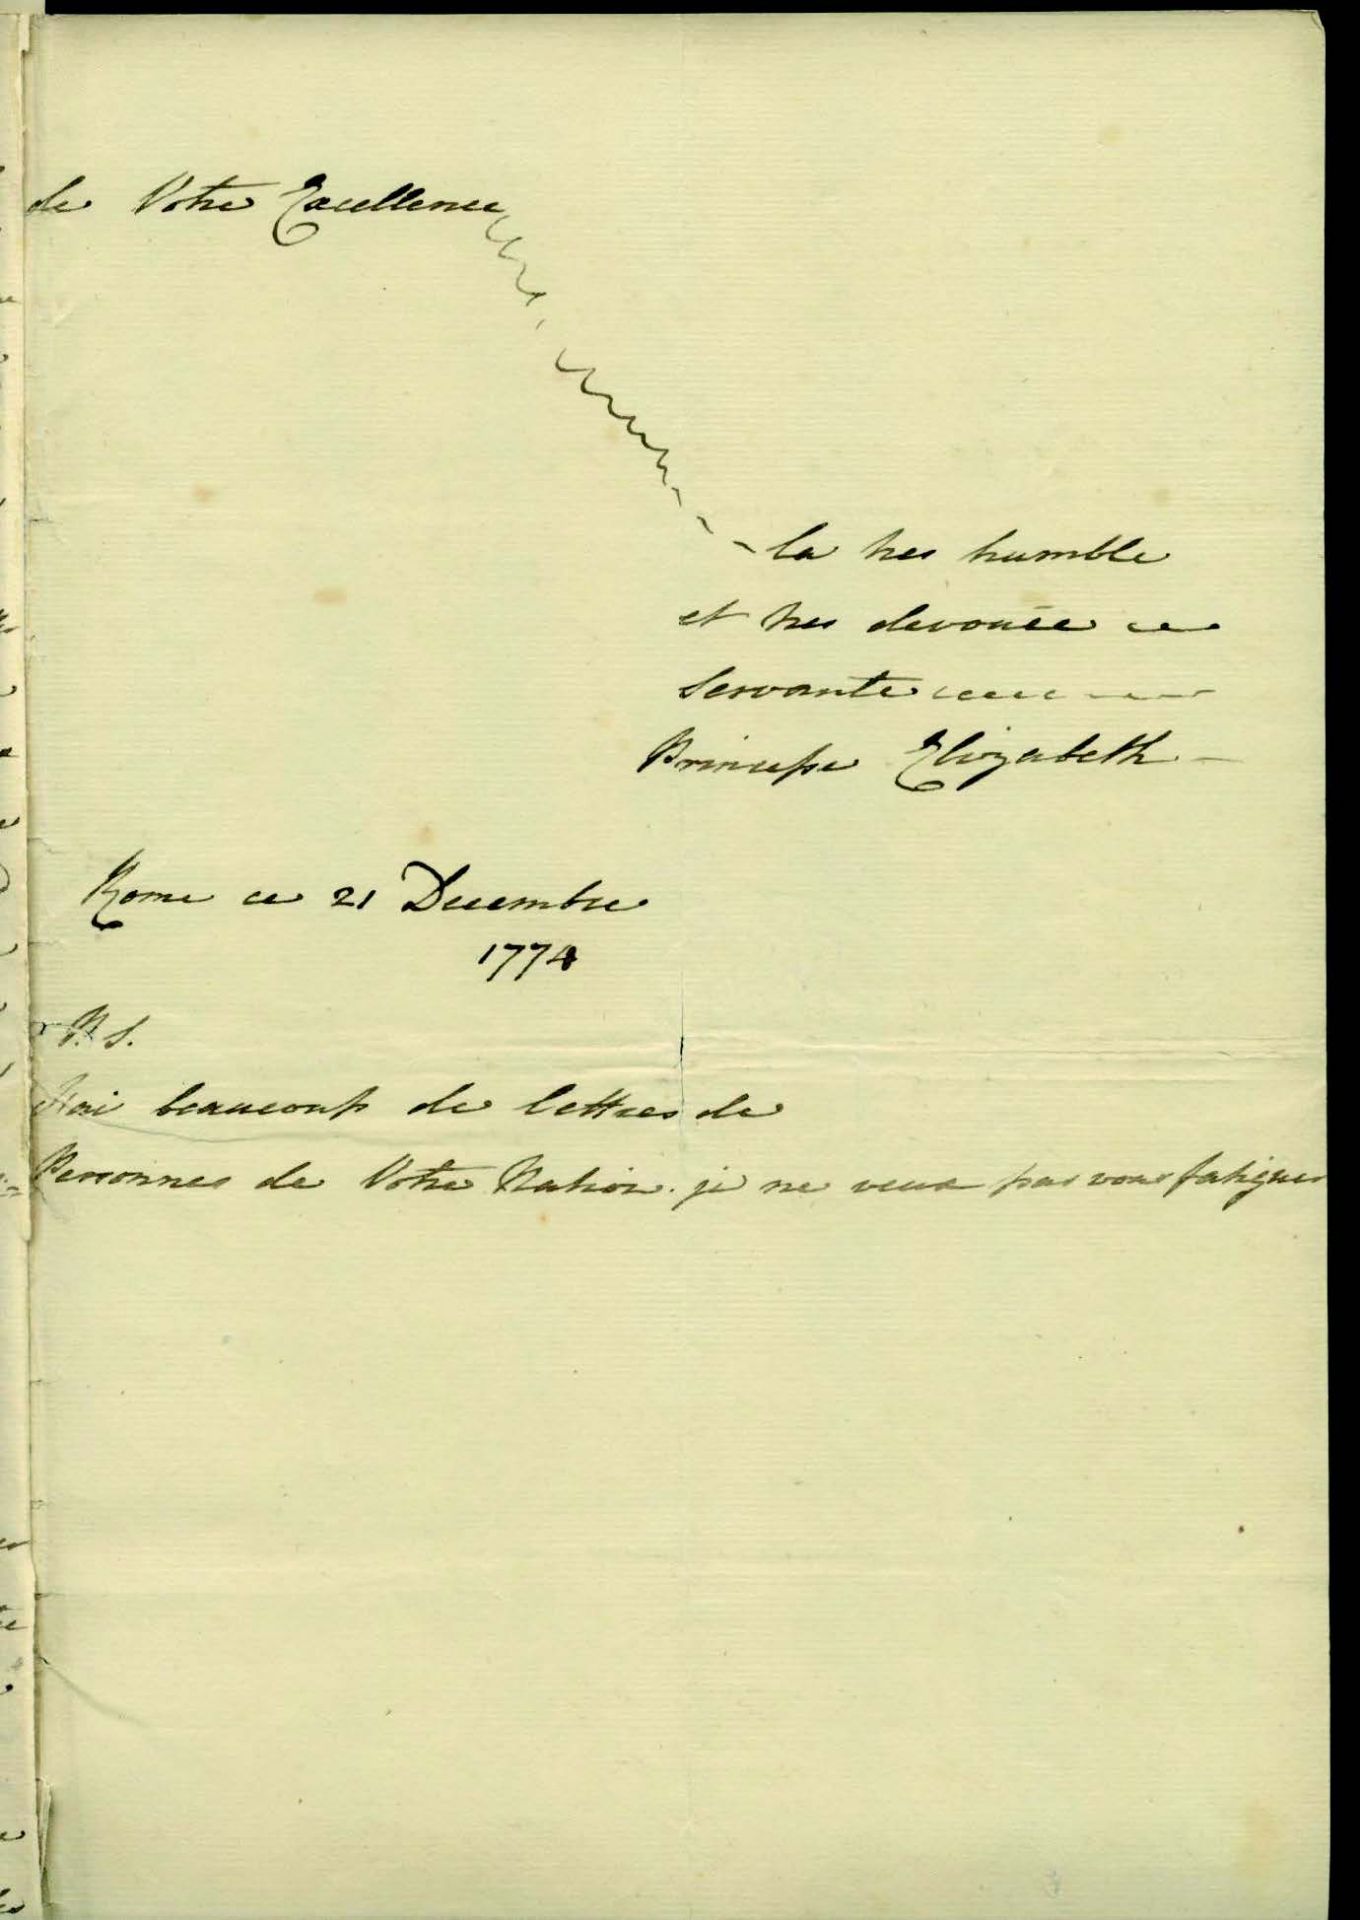 de Votre Excellence
la tres humble
et tres devouée
Servante
Princesse Elizabeth
Rome ce 21 Decembre
1774
P. S.
J'ai beaucoup de lettres de
Personnes de Votre Nation. je ne veux pas vous fatiguer